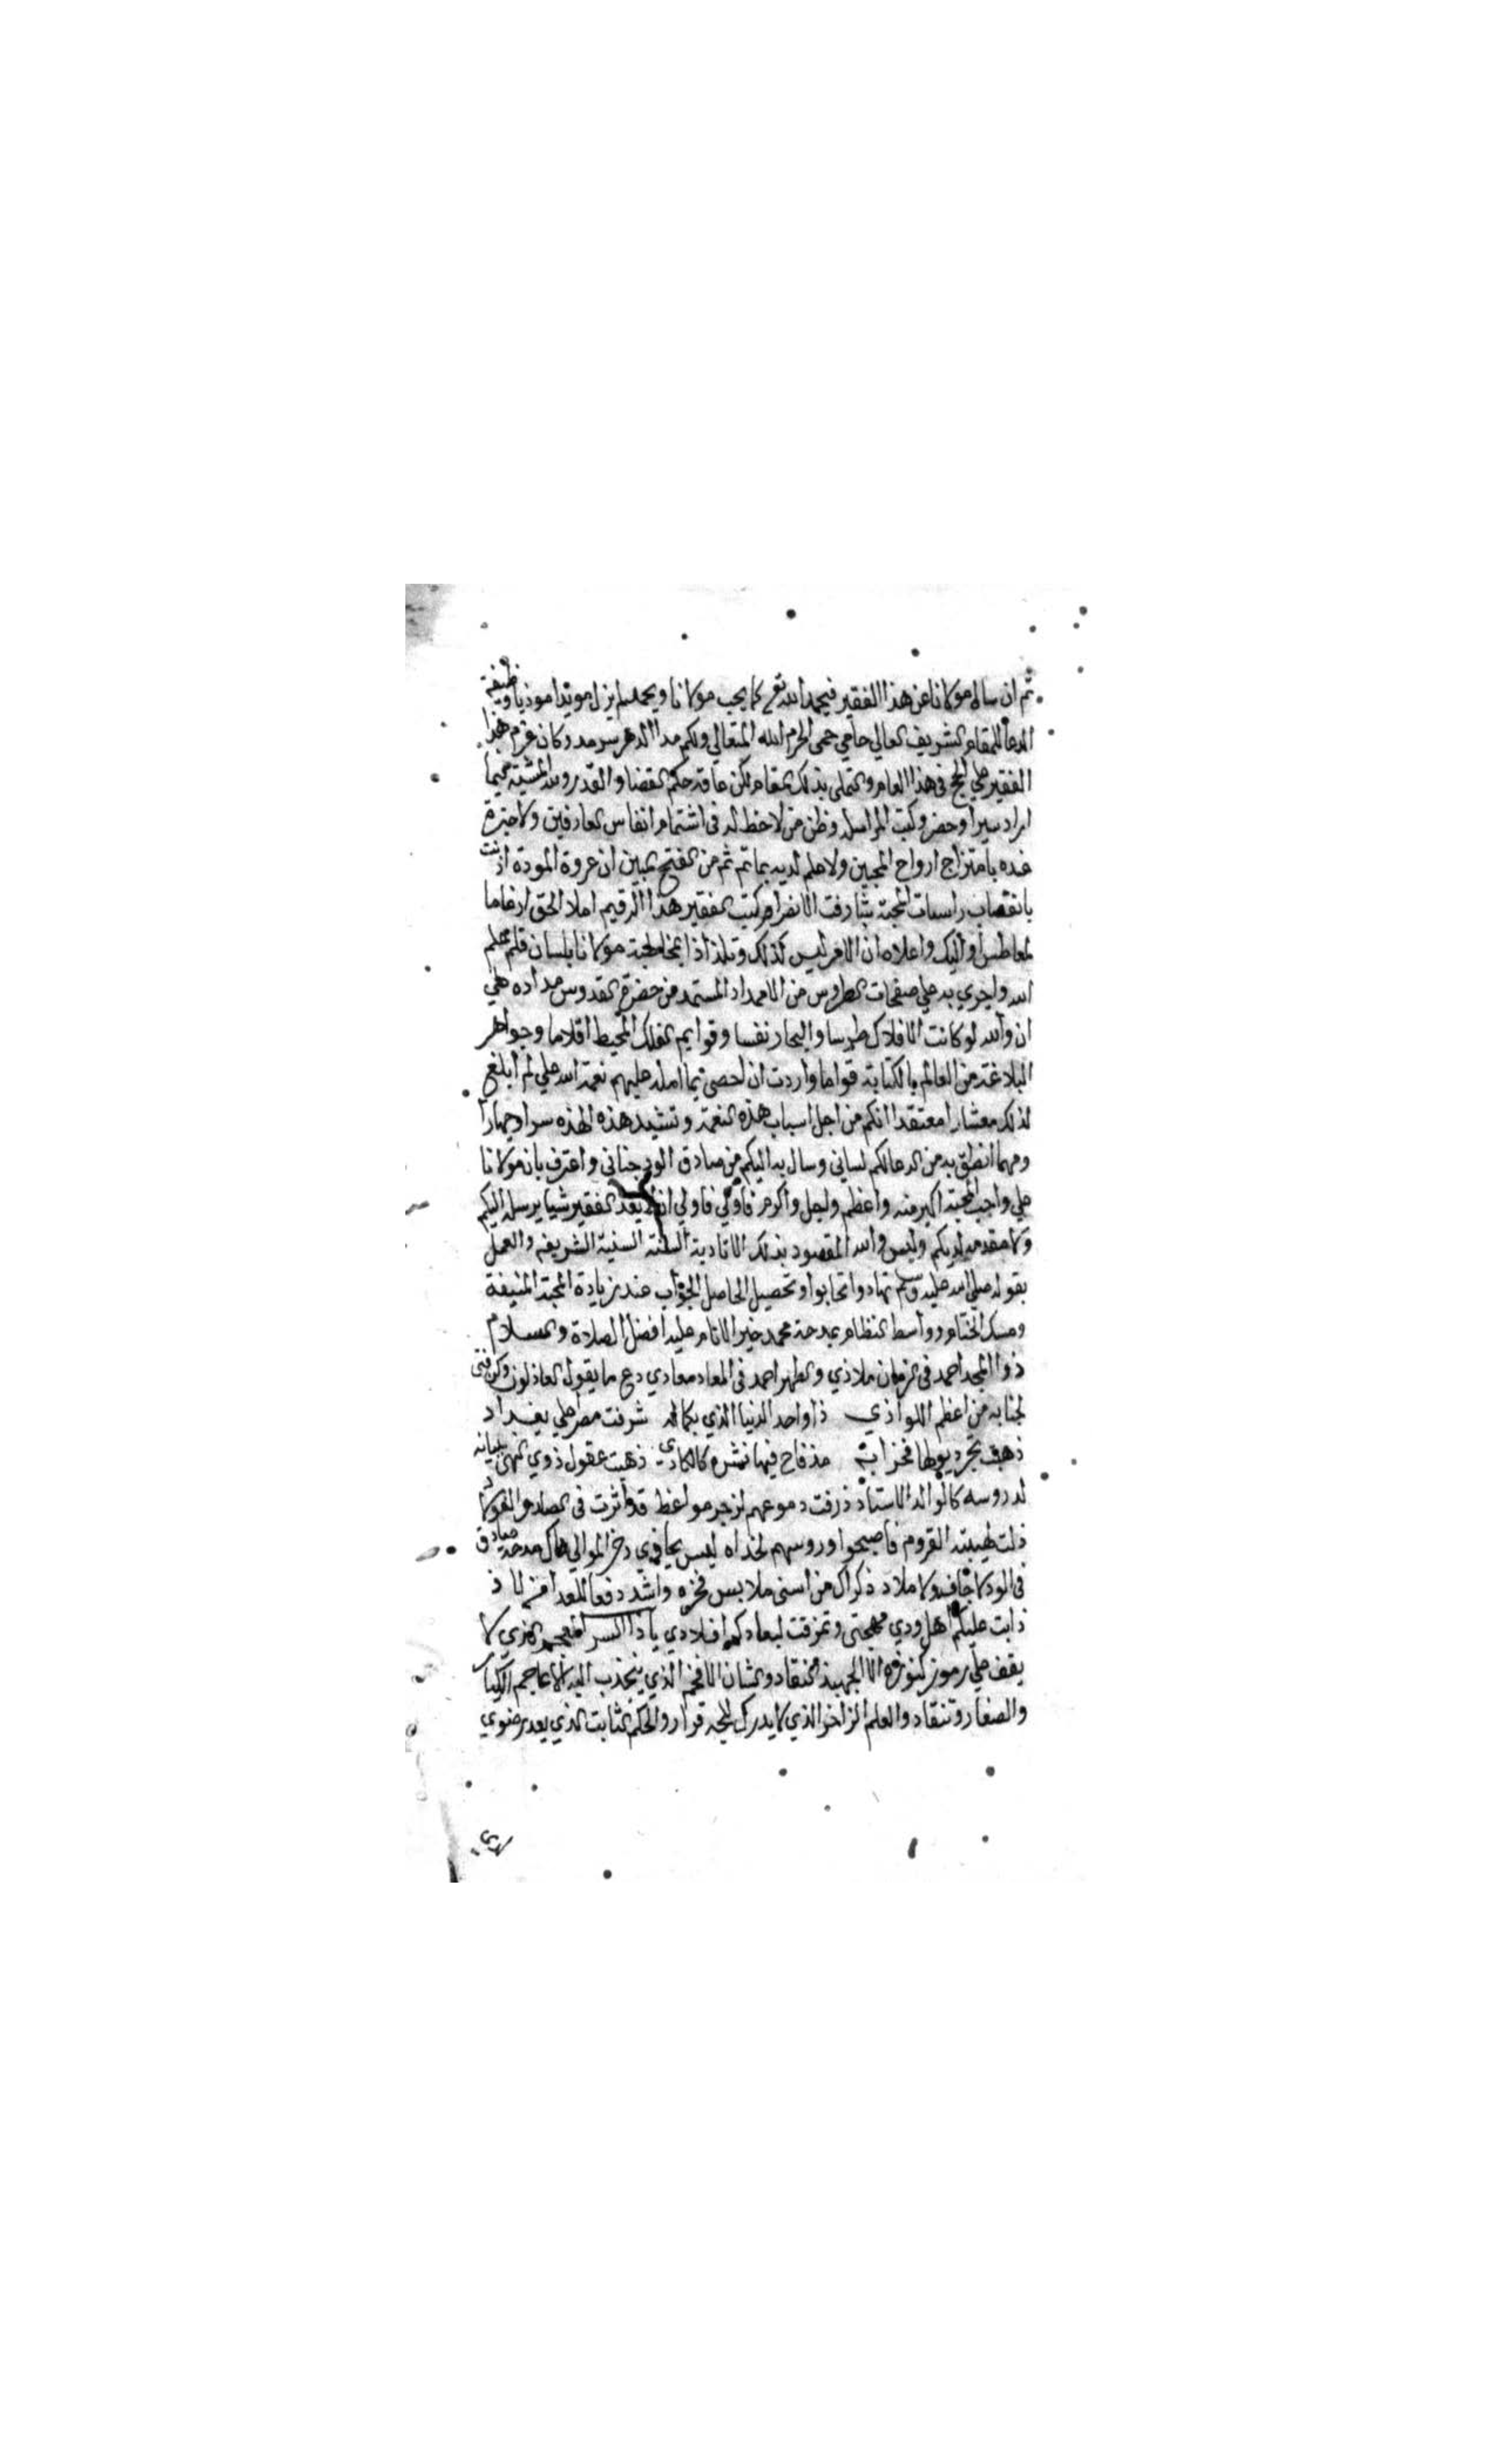 ثم ان سال مولانا عن هذا الفقير فبحمد الله تع كما يحب مولانا ويحمد لم يزل مويدا موذيا وظيفة
الدعا للمقام الشريف العالي حامي حمى الحرم المتعالي ولكم مدا الدهر سرمد وكان عزم هذا
الفقير علي الحج في هذا العام والتملي بذلك المقام لكن عاقه حكم القضا والقدر
وحضر وكتب المراسله وظن من لاحظ له في اشتمام انفاس العارفين ولا خبرة
عنده بامتزاج ارواح المحبين ولا علم لديه بما تم ثم من الفتح المبين ان عروة المودة اذنت
بانفصام راسيات المحبة شارفت الانفرام كتب الفقير هذا الرقيم املا الحق ارغاما
لمعاطس اولئك واعلاه ان الامر ليس كذلك وتلذذا بمخاطبة مولانا بلسان قلم علم
الله واجري به علي صفحات الطروس من الامداد المستمد من حضرة القدوس مداده علي
ان والله لو كانت الافلاك طرسا والبحار نفسا وقوايم الفلك المحيط اقلاما وجواهر
البلاغة من العالم بالكتابة قواما واردت ان احصي نعمة الله علي لم ابلغ
لذلك معشارا معتقدا انكم من اجل اسباب هذه النعمة وتشيد هذه
ومهما انطق به من الدعا لكم لساني وسال به اليكم من صادق الود جناني واعترف بان مولانا
علي واجب المحبة اكبر منه واعظم واجل واكرم فاولي فاولي ان لا يعد الفقير شيا يرسله اليكم
ولا مقدمه لديكم وليس والله المقصود بذلك الا تادية السنة السنية الشريفه والعمل
بقوله صلي الله عليه وسلم تهادوا تحابوا وتحصيل الحاصل الجواب عند زيادة المحبة المنيفة
ومسك الختام وواسط النظام بمدحة محمد خير الانام عليه افضل الصلاة والسلام
ذو المجد احمد في الزمان ملاذي والطهر احمد في المعاد معاذي دع ما يقول العاذلون وكن فتى
لجنابه من اعظم اللواذي ذا واحد الدنيا الذي بكماله شرفت مصر علي بغداد
ذهبت تجر ذيولها فخرا به مذ فاح فيها نشره كالكاذي ذهبت عقول ذوي النهى بلبيانه
لدروسه كالوالد الاستاذ ذرفت دموعهم لزجر مواعظ قد اثرت في الصلد والفولاذ
ذلت لهيبته القروم فاصبحوا وروسهم لحذاه ليس يحاذي ذخر الموالي هاك مدحة صادق
في الود لا جاف ولا ملاذ ذكراك من اسنى ملابس فخره واشد دفعا للعدا من لاذ
ذابت عليكم اهل ودي مهجتي وتمزقت لبعادكم افلاذي يا ذا السر الذي لا
يقف علي رموز كنوزه الا الجهبذ النقاد والشان الافخم الذي ينجذب اليه الاعاجم الكبار
والصغار وتنقاد والعلم الزاخر الذي لا يدرك للجه قرار والحكم الثابت الذي يعد رضوي